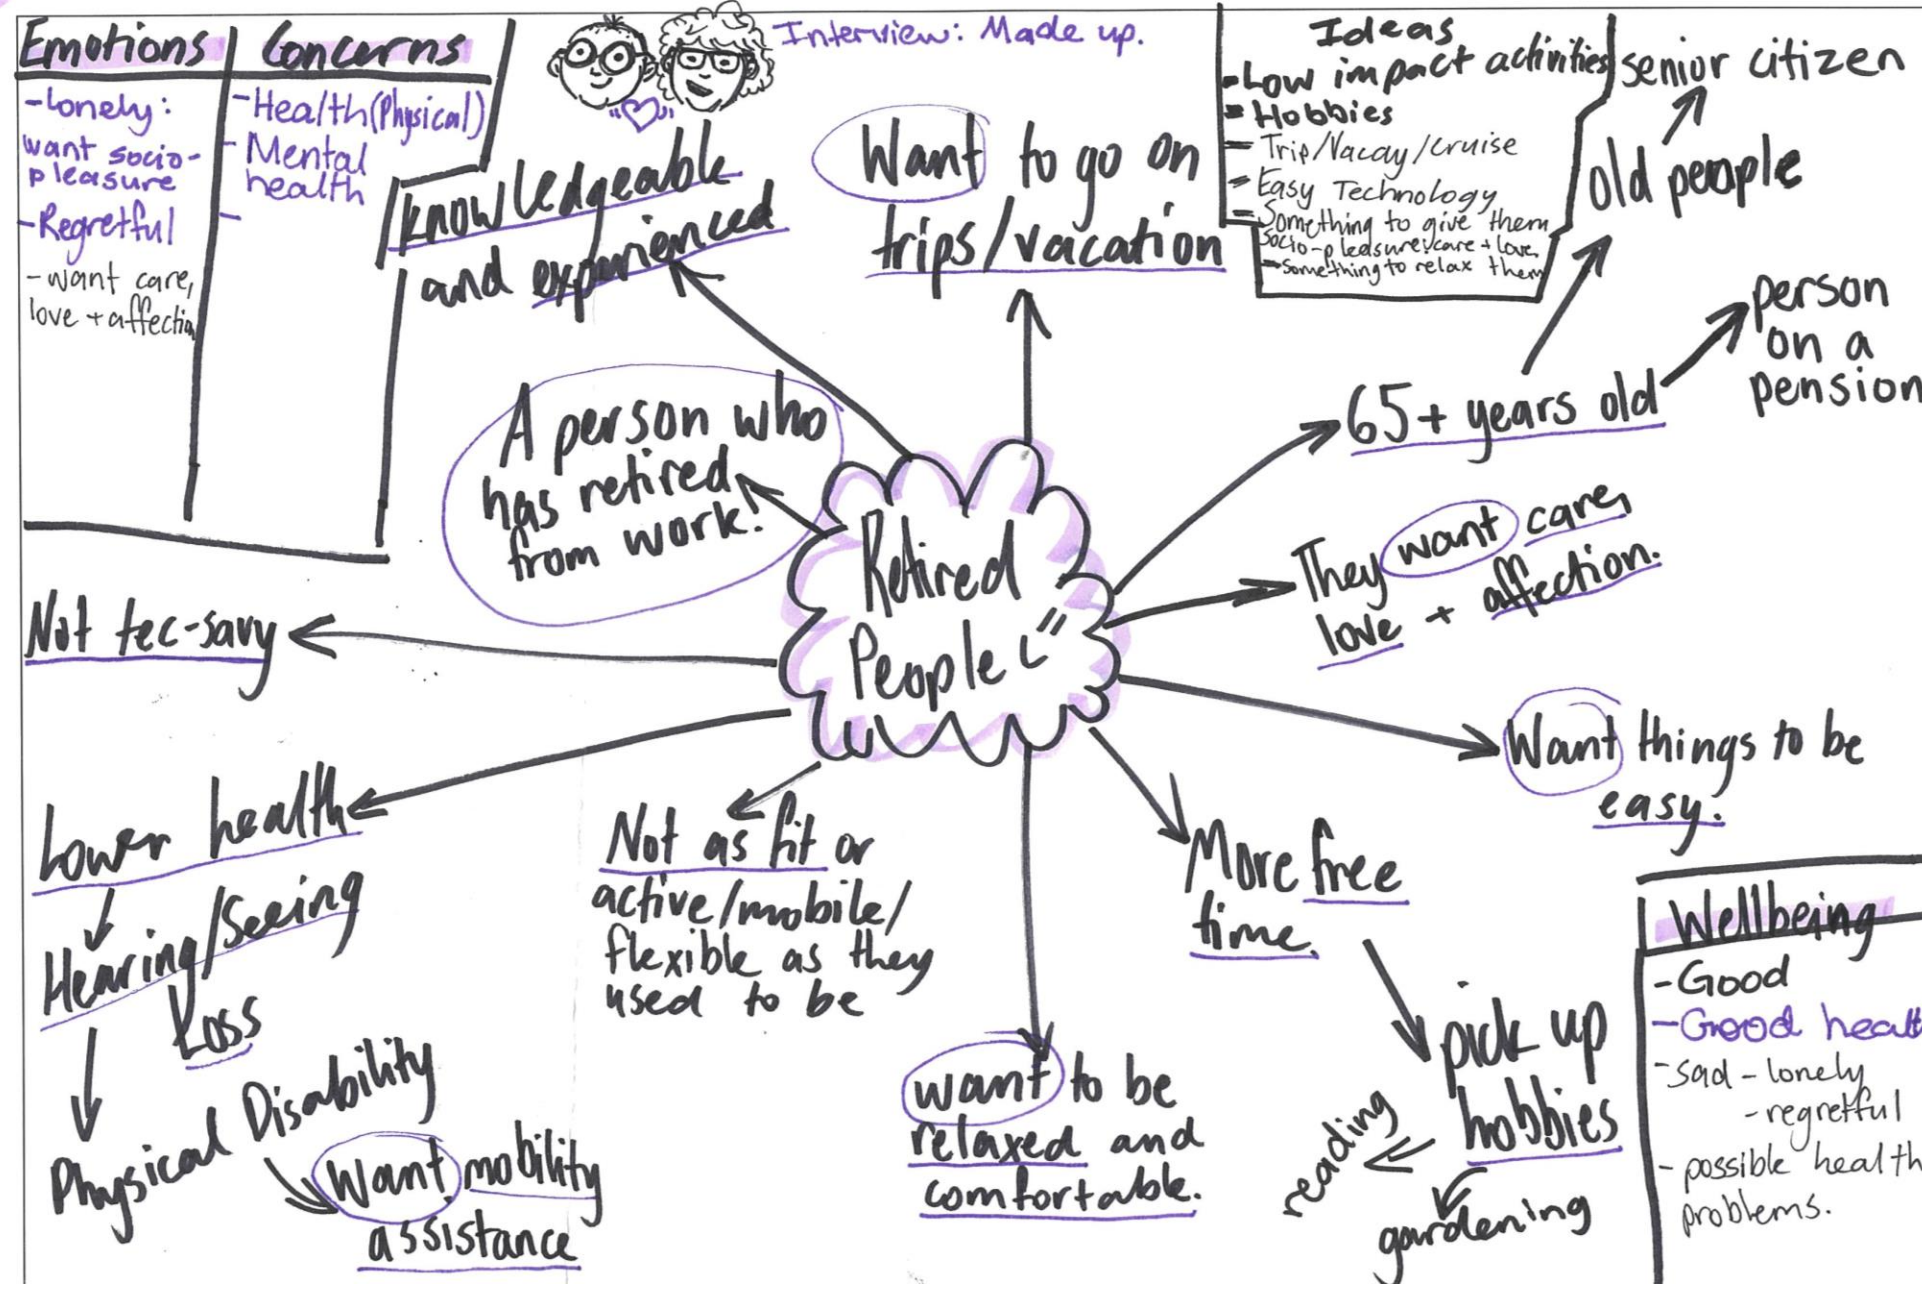 Emotions
-lonely:
want socio-
pleasure
-Regretful
-want care,
love + affectio
Concerns
-Health (Physical)
- Mental
health
-
Interview: Made up.
Ideas
-Low impact activities
- Hobbies
- Trip/Vacay/cruise
- Easy Technology
- Something to give them
socio-pleasure: care + love
-something to relax them
senior citizen
old people
person
on a
pension
65+ years old
knowledgeable
and experienced
Want to go on
trips/vacation
A person who
has retired
from work!
Retired
People
They want care,
love + affection.
Want things to be
easy.
Not tec-savy
Lower health
Hearing/Seeing
Loss
Physical Disability
Want mobility
assistance
Not as fit or
active/mobile/
flexible as they
used to be
want to be
relaxed and
comfortable.
More free
time.
pick up
hobbies
reading
gardening
Wellbeing
-Good
-Good healt
-sad - lonely
- regretful
- possible health
problems.